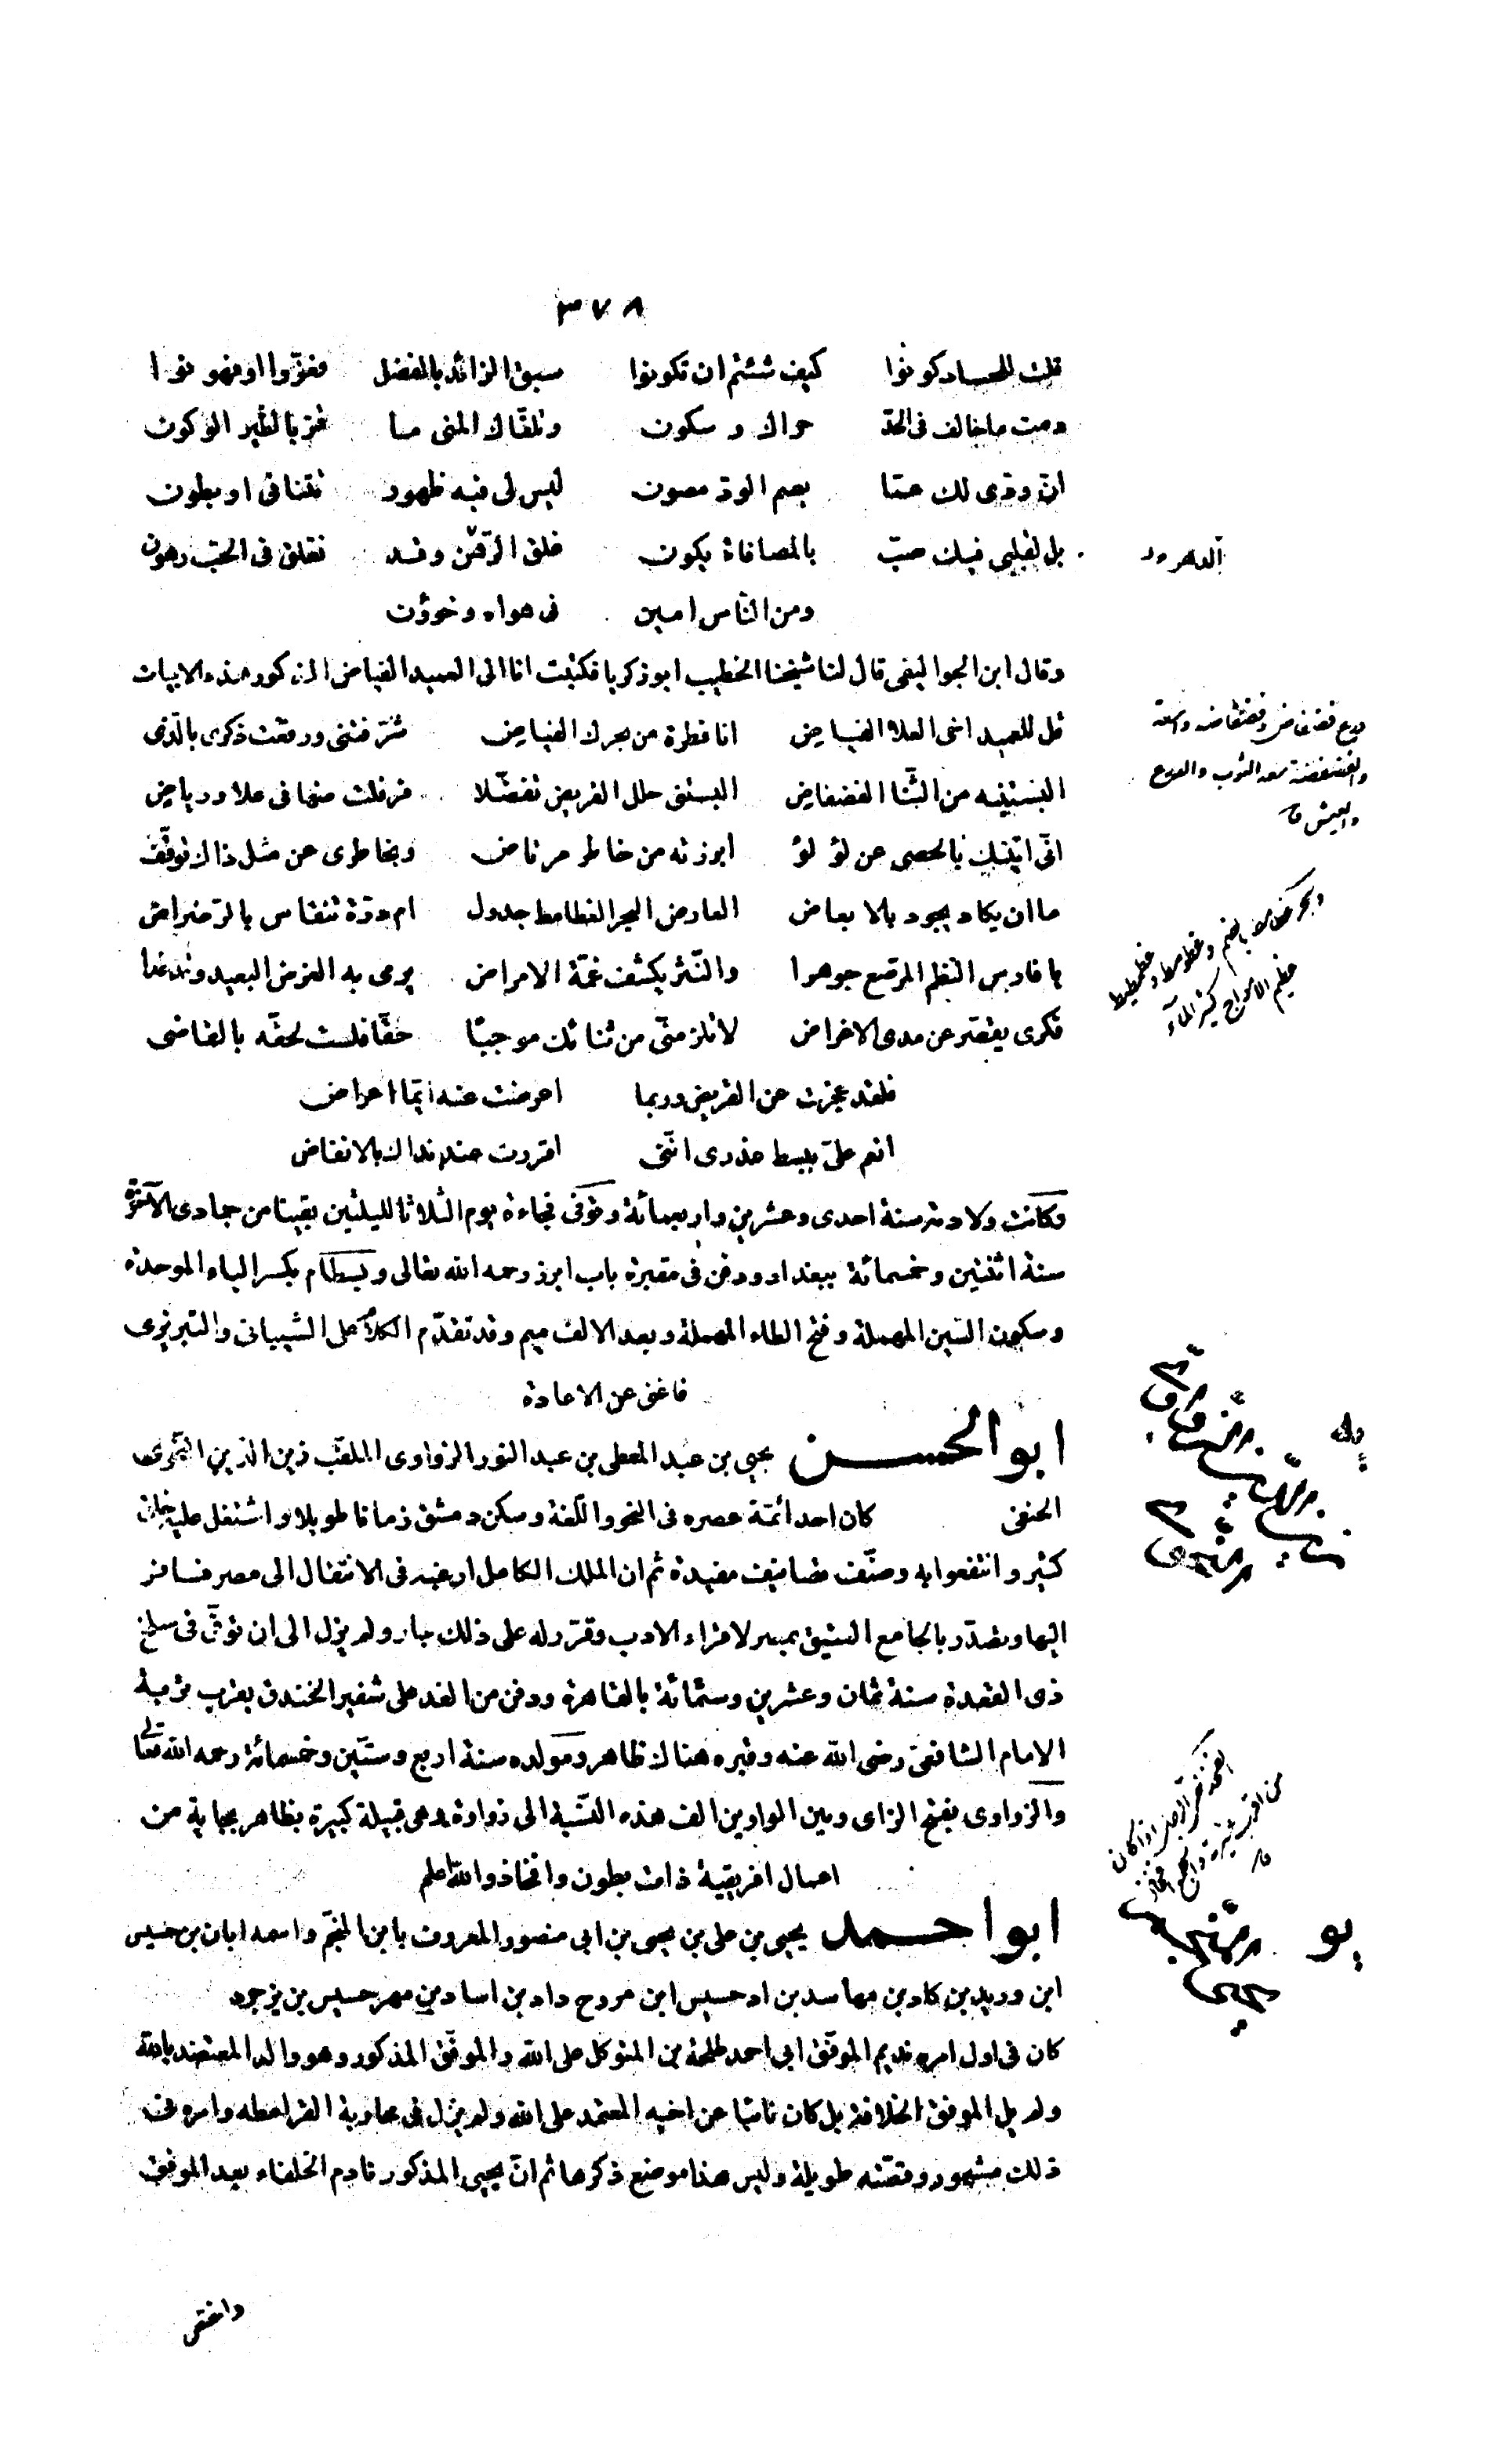 ٣٧٨
قلت للحساد كونوا كيف شئتم ان تكونوا سبق الزائد بالفضل فعزوا او فهونوا
دمت ما خالف فى الحد حراك وسكون وتلقاك المنى ما غر بالطير الوكون
ان ودى لك عما يصم الود مصون ليس لى فيه ظهور تتنافى او بطون
بل لقلبى فيك صب بالمصافاة يكون غلق الرهن وقد تغلق فى الحب رهون
ومن الناس امين فى هواه وخوون
وقال ابن الجواليقى قال لنا شيخنا الخطيب ابو زكريا فكتبت انا الى العميد الفياض المذكور هذه الابيات
قل للعميد اخى العلا الفياض انا قطرة من بحرك الفياض شرفتنى ورفعت ذكرى بالذى
البستنيه من الثنا الفضفاض البستنى حلل القريض تفضلا فرفلت منها فى علا ورياض
انى اتيتك بالحصى عن لؤلؤ ابرزته من خاطر مرتاض وبخاطرى عن مثل ذاك توقف
ما ان يكاد يجود بالابعاض العارض البحر الغطامط جدول ام درة تنقاس بالرضراض
يا فارس النظم المرصع جوهرا والنثر يكشف غمة الامراض يرمى به الغرض البعيد وقد غدا
فكرى يقصر عن مدى الاغراض لا تلزمنى من ثنائك موجبا حقا فلست لحقه بالقاضى
فلقد عجزت عن القريض وربما اعرضت عنه ايما اعراض
انعم على ببسط عذرى اننى اقررت عند نداك بالانفاض
وكانت ولادته سنة احدى وعشرين واربعمائة وتوفى فجاءة يوم الثلاثا لليلتين بقيتا من جمادى الآخرة
سنة اثنتين وخمسمائة ببغداد ودفن فى مقبرة باب ابرز رحمه الله تعالى وبسطام بكسر الباء الموحدة
وسكون السين المهملة وفتح الطاء المهملة وبعد الالف ميم وقد تقدم الكلام على الشيبانى والتبريزى
فاغنى عن الاعادة
ابو الحسن يحيى بن عبد المعطى بن عبد النور الزواوى الملقب زين الدين النحوى
الحنفى كان احد ائمة عصره فى النحو واللغة وسكن دمشق زمانا طويلا واشتغل عليه خلق
كثير وانتفعوا به وصنف تصانيف مفيدة ثم ان الملك الكامل ارغبه فى الانتقال الى مصر فسافر
اليها وتصدر بالجامع العتيق بمصر لاقراء الادب وقرر له على ذلك جار ولم يزل الى ان توفى فى سلخ
ذى القعدة سنة ثمان وعشرين وستمائة بالقاهرة ودفن من الغد على شفير الخندق بقرب تربة
الامام الشافعى رضى الله عنه وقبره هناك ظاهر ومولده سنة اربع وستين وخمسمائة رحمه الله تعالى
والزواوى بفتح الزاى وبين الواوين الف هذه النسبة الى زواوة وهى قبيلة كبيرة بظاهر بجاية من
اعمال افريقية ذات بطون وافخاذ والله اعلم
ابو احمد يحيى بن على بن يحيى بن ابى منصور المعروف بابن المنجم واسمه ابان بن حسيس
ابن وريد بن كاد بن مهاسد بن اد حسيس ابن فروخ داد بن اساد بن مهر حسيس بن يزجرد
كان فى اول امره نديم الموفق ابى احمد طلحة بن المتوكل على الله والموفق المذكور وهو والد المعتضد بالله
ولم يل الموفق الخلافة بل كان نائبا عن اخيه المعتمد على الله ولم يزل فى محاربة القرامطه وامره فى
ذلك مشهور وقصته طويلة وليس هذا موضع ذكرها ثم ان يحيى المذكور نادم الخلفاء بعد الموفق
درع فضفاض وفضفاضه واسعة
والفضفضة سعة الثوب والدرع
والعيش
عظيم الامواج كثير الماء